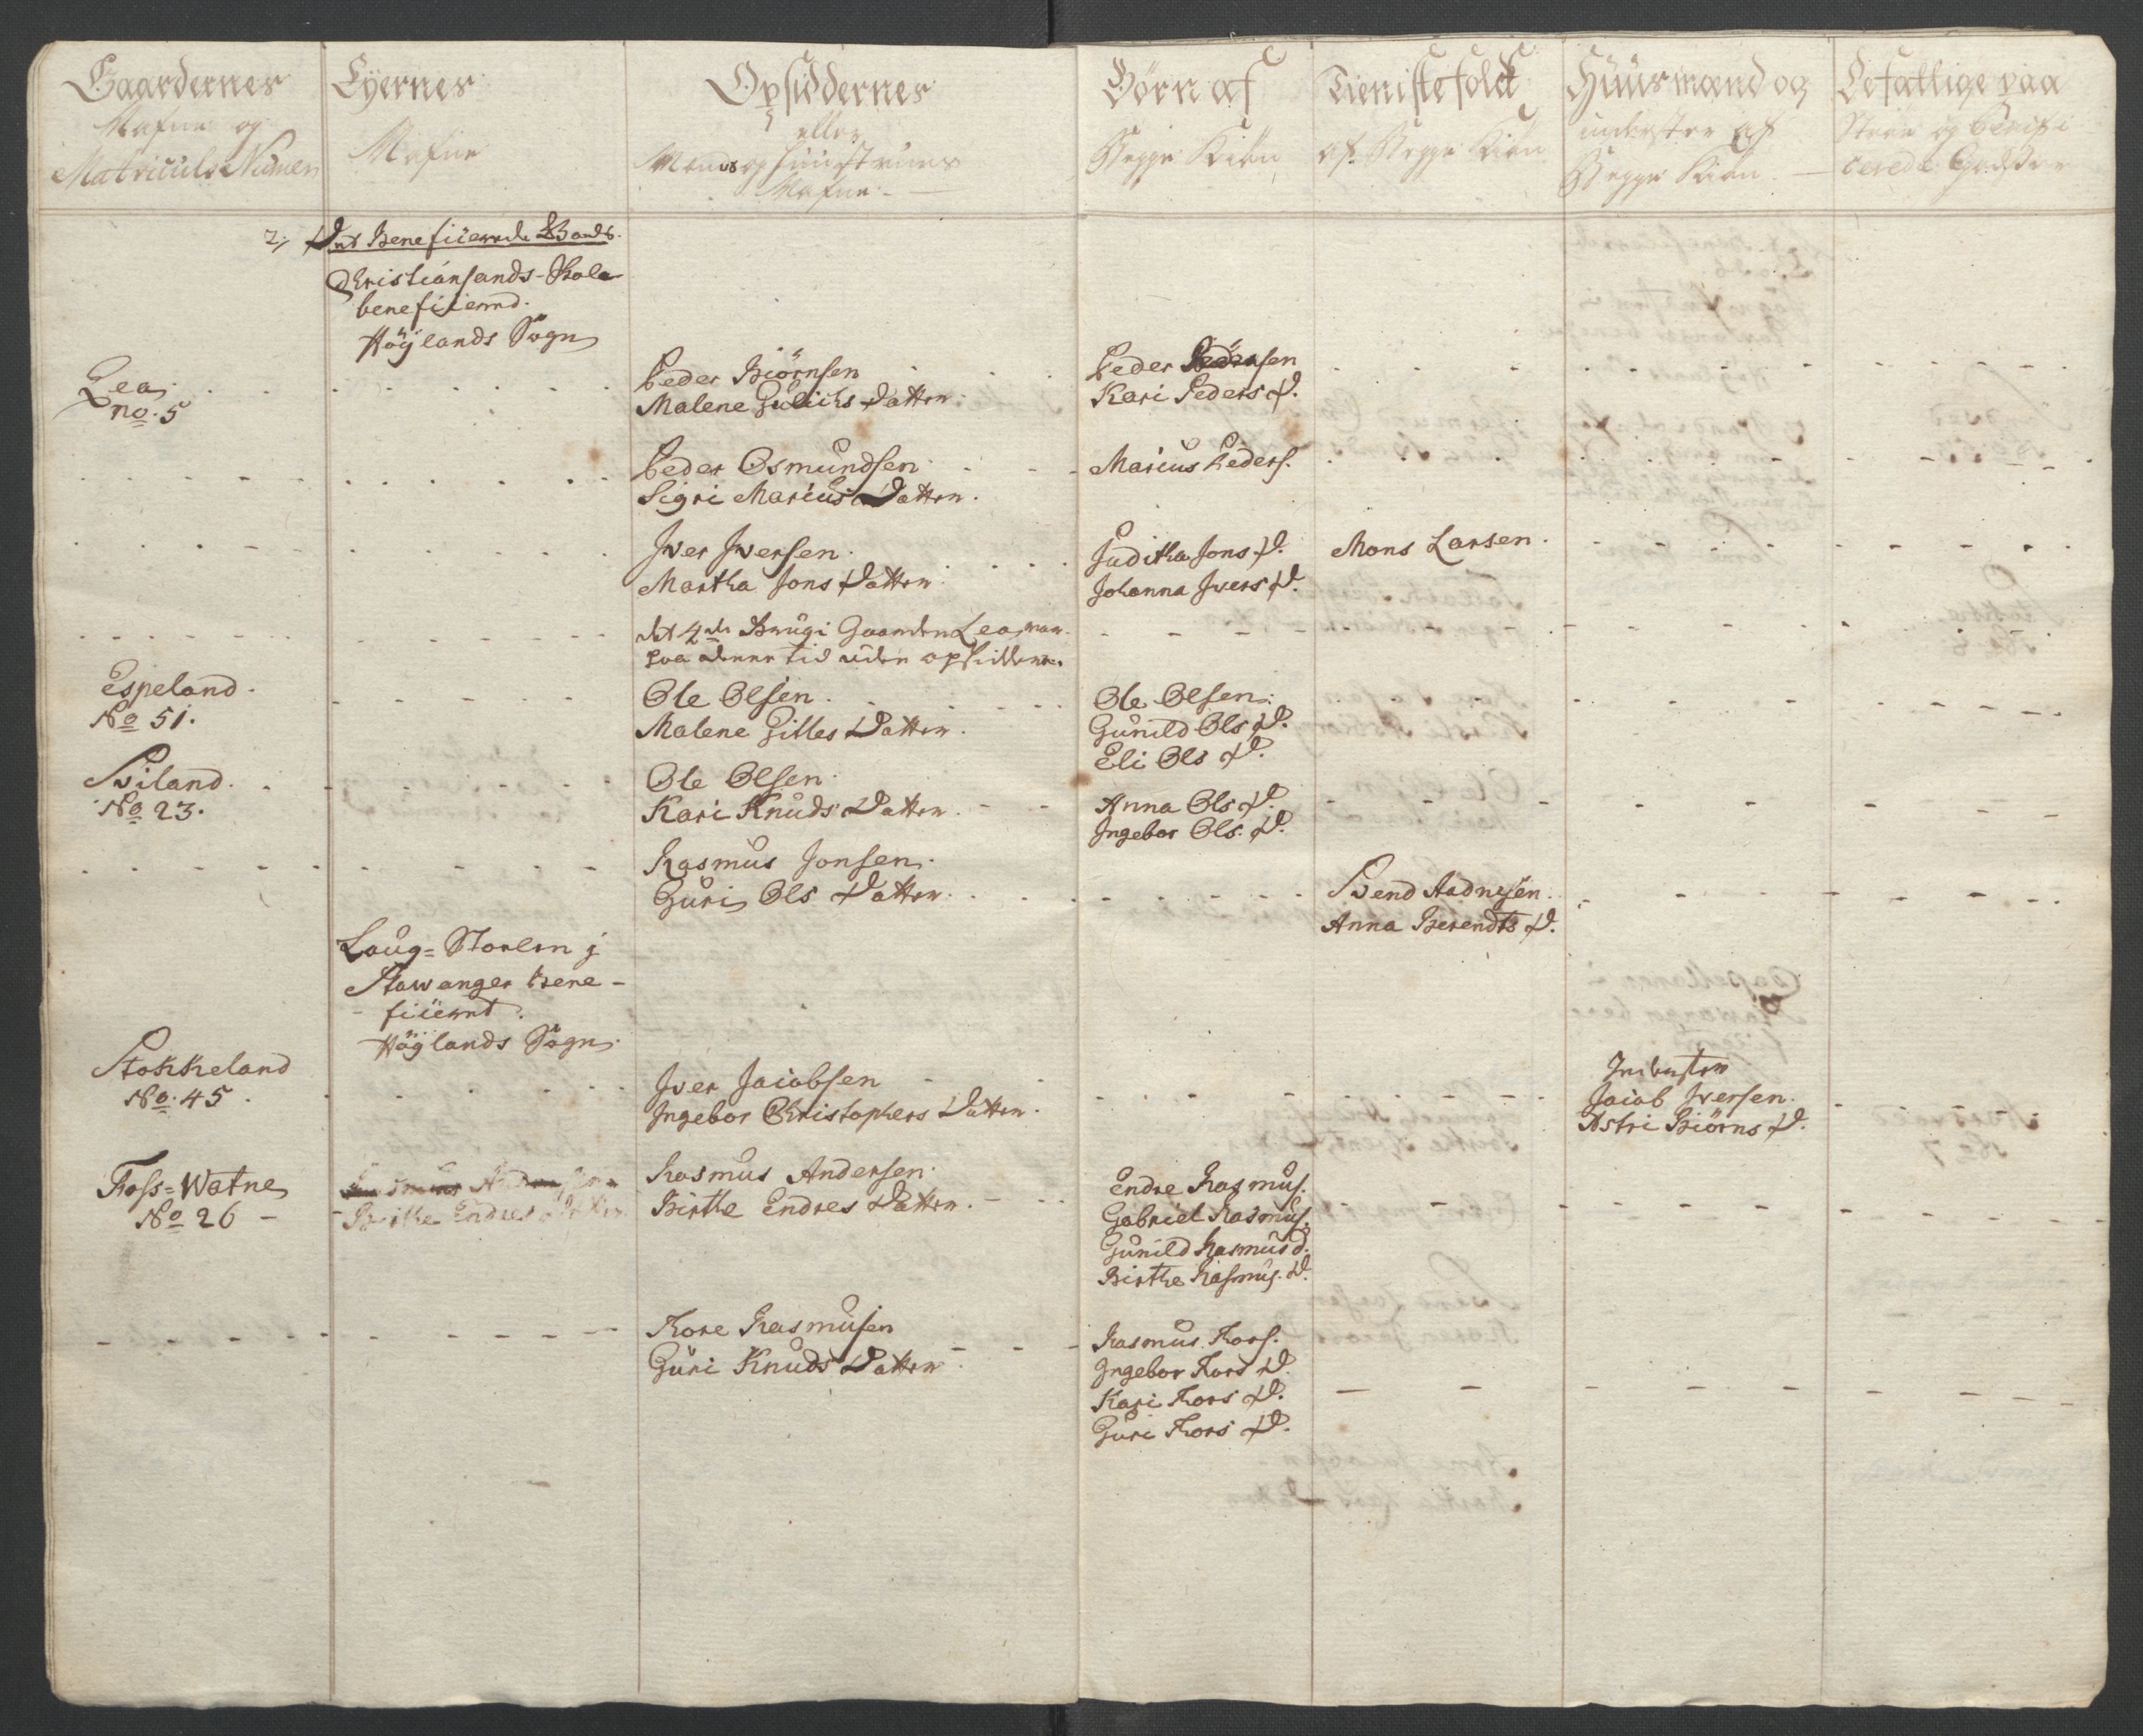 Gaardernes
Nafne og
Matriculs Numer
Eÿernes
Nafne
Opsiddernes
eller
Mands og Huustruers
Nafne
Börn af
Begge Kiön
Tieniste folck
af Begge Kiön
Huusmænd og
inderster af
Begge Kiön
Lefattige paa
2,
Det Beneficerede Gods
Christiansands-Skole
beneficeered.
Höÿlands Sogn
Lea
no. 5
Peder Biörnsen
Malene Gulichs Datter
Peder Pedersen
Kari Peders D.
Peder Osmundsen
Sigri Marcus Datter.
Marcus Peders.
Iver Iversen
Martha Jons Datter
Juditha Jons D.
Johanna Ivers D.
Mons Larsen.
det 4de Brug i Gaarden Lea, war
paa denne tid uden opsiddere.
Espeland.
No 51.
Ole Olsen.
Malene Gilles Datter.
Ole Olsen.
Gunild Ols D.
Eli Ols D.
Sviland.
No 23.
Ole Olsen
Kari Knuds Datter.
Anna Ols D.
Ingebor Ols. D.
Rasmus Jonsen.
Guri Ols Datter.
Svend Aadnesen.
Anna Berendts D.
Laug-Stolen j
Stawanger bene-
ficieret.
Höÿlands Sogn.
Stokkeland
No. 45
Iver Jacobsen
Ingebor Christophers Datter.
Inderster
Jacob Iversen.
Astri Biörns D.
Foss-Watne
No 26
Rasmus Andersen
Birthe Endres Datter
Rasmus Andersen
Birthe Endres Datter.
Endre Rasmus.
Gabriel Rasmus.
Gunild Rasmus d.
Birthe Rasmus. D.
Tore Rasmusen
Guri Knuds Datter
Rasmus Tors.
Ingebor Tors D.
Kari Tors D.
Guri Tors D.